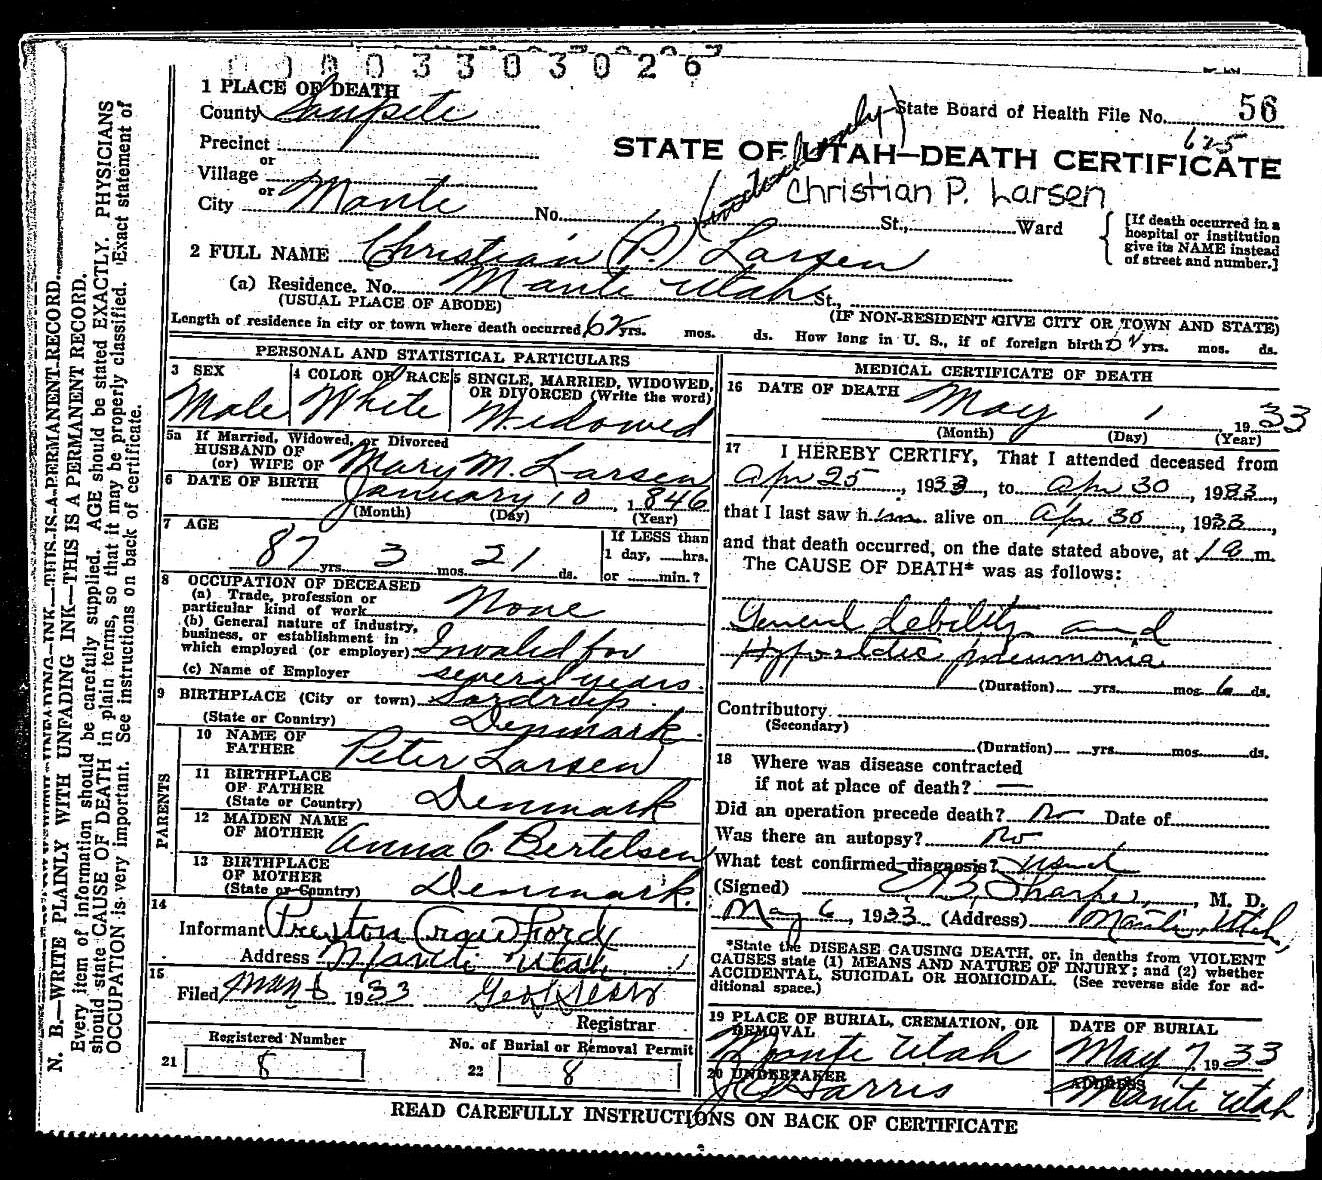 0003303026
1 PLACE OF DEATH
County Sanpete
State Board of Health File No. 56
625
Precinct
or
Village
or
City Manti No. St., Ward
STATE OF UTAH—DEATH CERTIFICATE
Christian P. Larsen
[If death occurred in a
hospital or institution
give its NAME instead
of street and number.]
2 FULL NAME Christian (P) Larsen
(a) Residence. No. Manti Utah St.,
(USUAL PLACE OF ABODE)
(IF NON-RESIDENT GIVE CITY OR TOWN AND STATE)
Length of residence in city or town where death occurred 62 yrs. mos. ds. How long in U. S., if of foreign birth yrs. mos. ds.
PERSONAL AND STATISTICAL PARTICULARS
3 SEX
Male
4 COLOR OR RACE
White
5 SINGLE, MARRIED, WIDOWED,
OR DIVORCED (Write the word)
Widowed
5a If Married, Widowed, or Divorced
HUSBAND OF
(or) WIFE OF Mary M. Larsen
6 DATE OF BIRTH
January 10, 1846
(Month) (Day) (Year)
7 AGE
87 yrs. 3 mos. 21 ds.
If LESS than
1 day, hrs.
or min.?
8 OCCUPATION OF DECEASED
(a) Trade, profession or
particular kind of work None
(b) General nature of industry,
business, or establishment in
which employed (or employer) Invalid for
(c) Name of Employer several years.
9 BIRTHPLACE (City or town)
(State or Country) Denmark.
PARENTS
10 NAME OF
FATHER Peter Larsen
11 BIRTHPLACE
OF FATHER
(State or Country) Denmark
12 MAIDEN NAME
OF MOTHER Anna C. Bertelsen
13 BIRTHPLACE
OF MOTHER
(State or Country) Denmark.
14
Informant Preston Crawford
Address Manti Utah
15
Filed May 6 1933
Registrar
Registered Number
21 8
No. of Burial or Removal Permit
22 8
MEDICAL CERTIFICATE OF DEATH
16 DATE OF DEATH May 1, 1933
(Month) (Day) (Year)
17 I HEREBY CERTIFY, That I attended deceased from
Apr 25, 1933, to Apr 30, 1933,
that I last saw him alive on Apr 30, 1933,
and that death occurred, on the date stated above, at 1 a m.
The CAUSE OF DEATH* was as follows:
General debility and
Hypostatic pneumonia
(Duration) yrs. mos. 6 ds.
Contributory
(Secondary)
(Duration) yrs. mos. ds.
18 Where was disease contracted
if not at place of death? —
Did an operation precede death? No Date of
Was there an autopsy? No
What test confirmed diagnosis? Usual
(Signed) M. D.
May 6, 1933 (Address) Manti, Utah,
*State the DISEASE CAUSING DEATH, or, in deaths from VIOLENT
CAUSES state (1) MEANS AND NATURE OF INJURY; and (2) whether
ACCIDENTAL, SUICIDAL OR HOMICIDAL. (See reverse side for ad-
ditional space.)
19 PLACE OF BURIAL, CREMATION, OR
REMOVAL
Manti Utah
DATE OF BURIAL
May 7, 1933
20 UNDERTAKER
Harris
ADDRESS
Manti Utah
READ CAREFULLY INSTRUCTIONS ON BACK OF CERTIFICATE
N. B.—WRITE PLAINLY WITH UNFADING INK—THIS IS A PERMANENT RECORD.
Every item of information should be carefully supplied. AGE should be stated EXACTLY. PHYSICIANS
should state CAUSE OF DEATH in plain terms, so that it may be properly classified. Exact statement of
OCCUPATION is very important. See instructions on back of certificate.